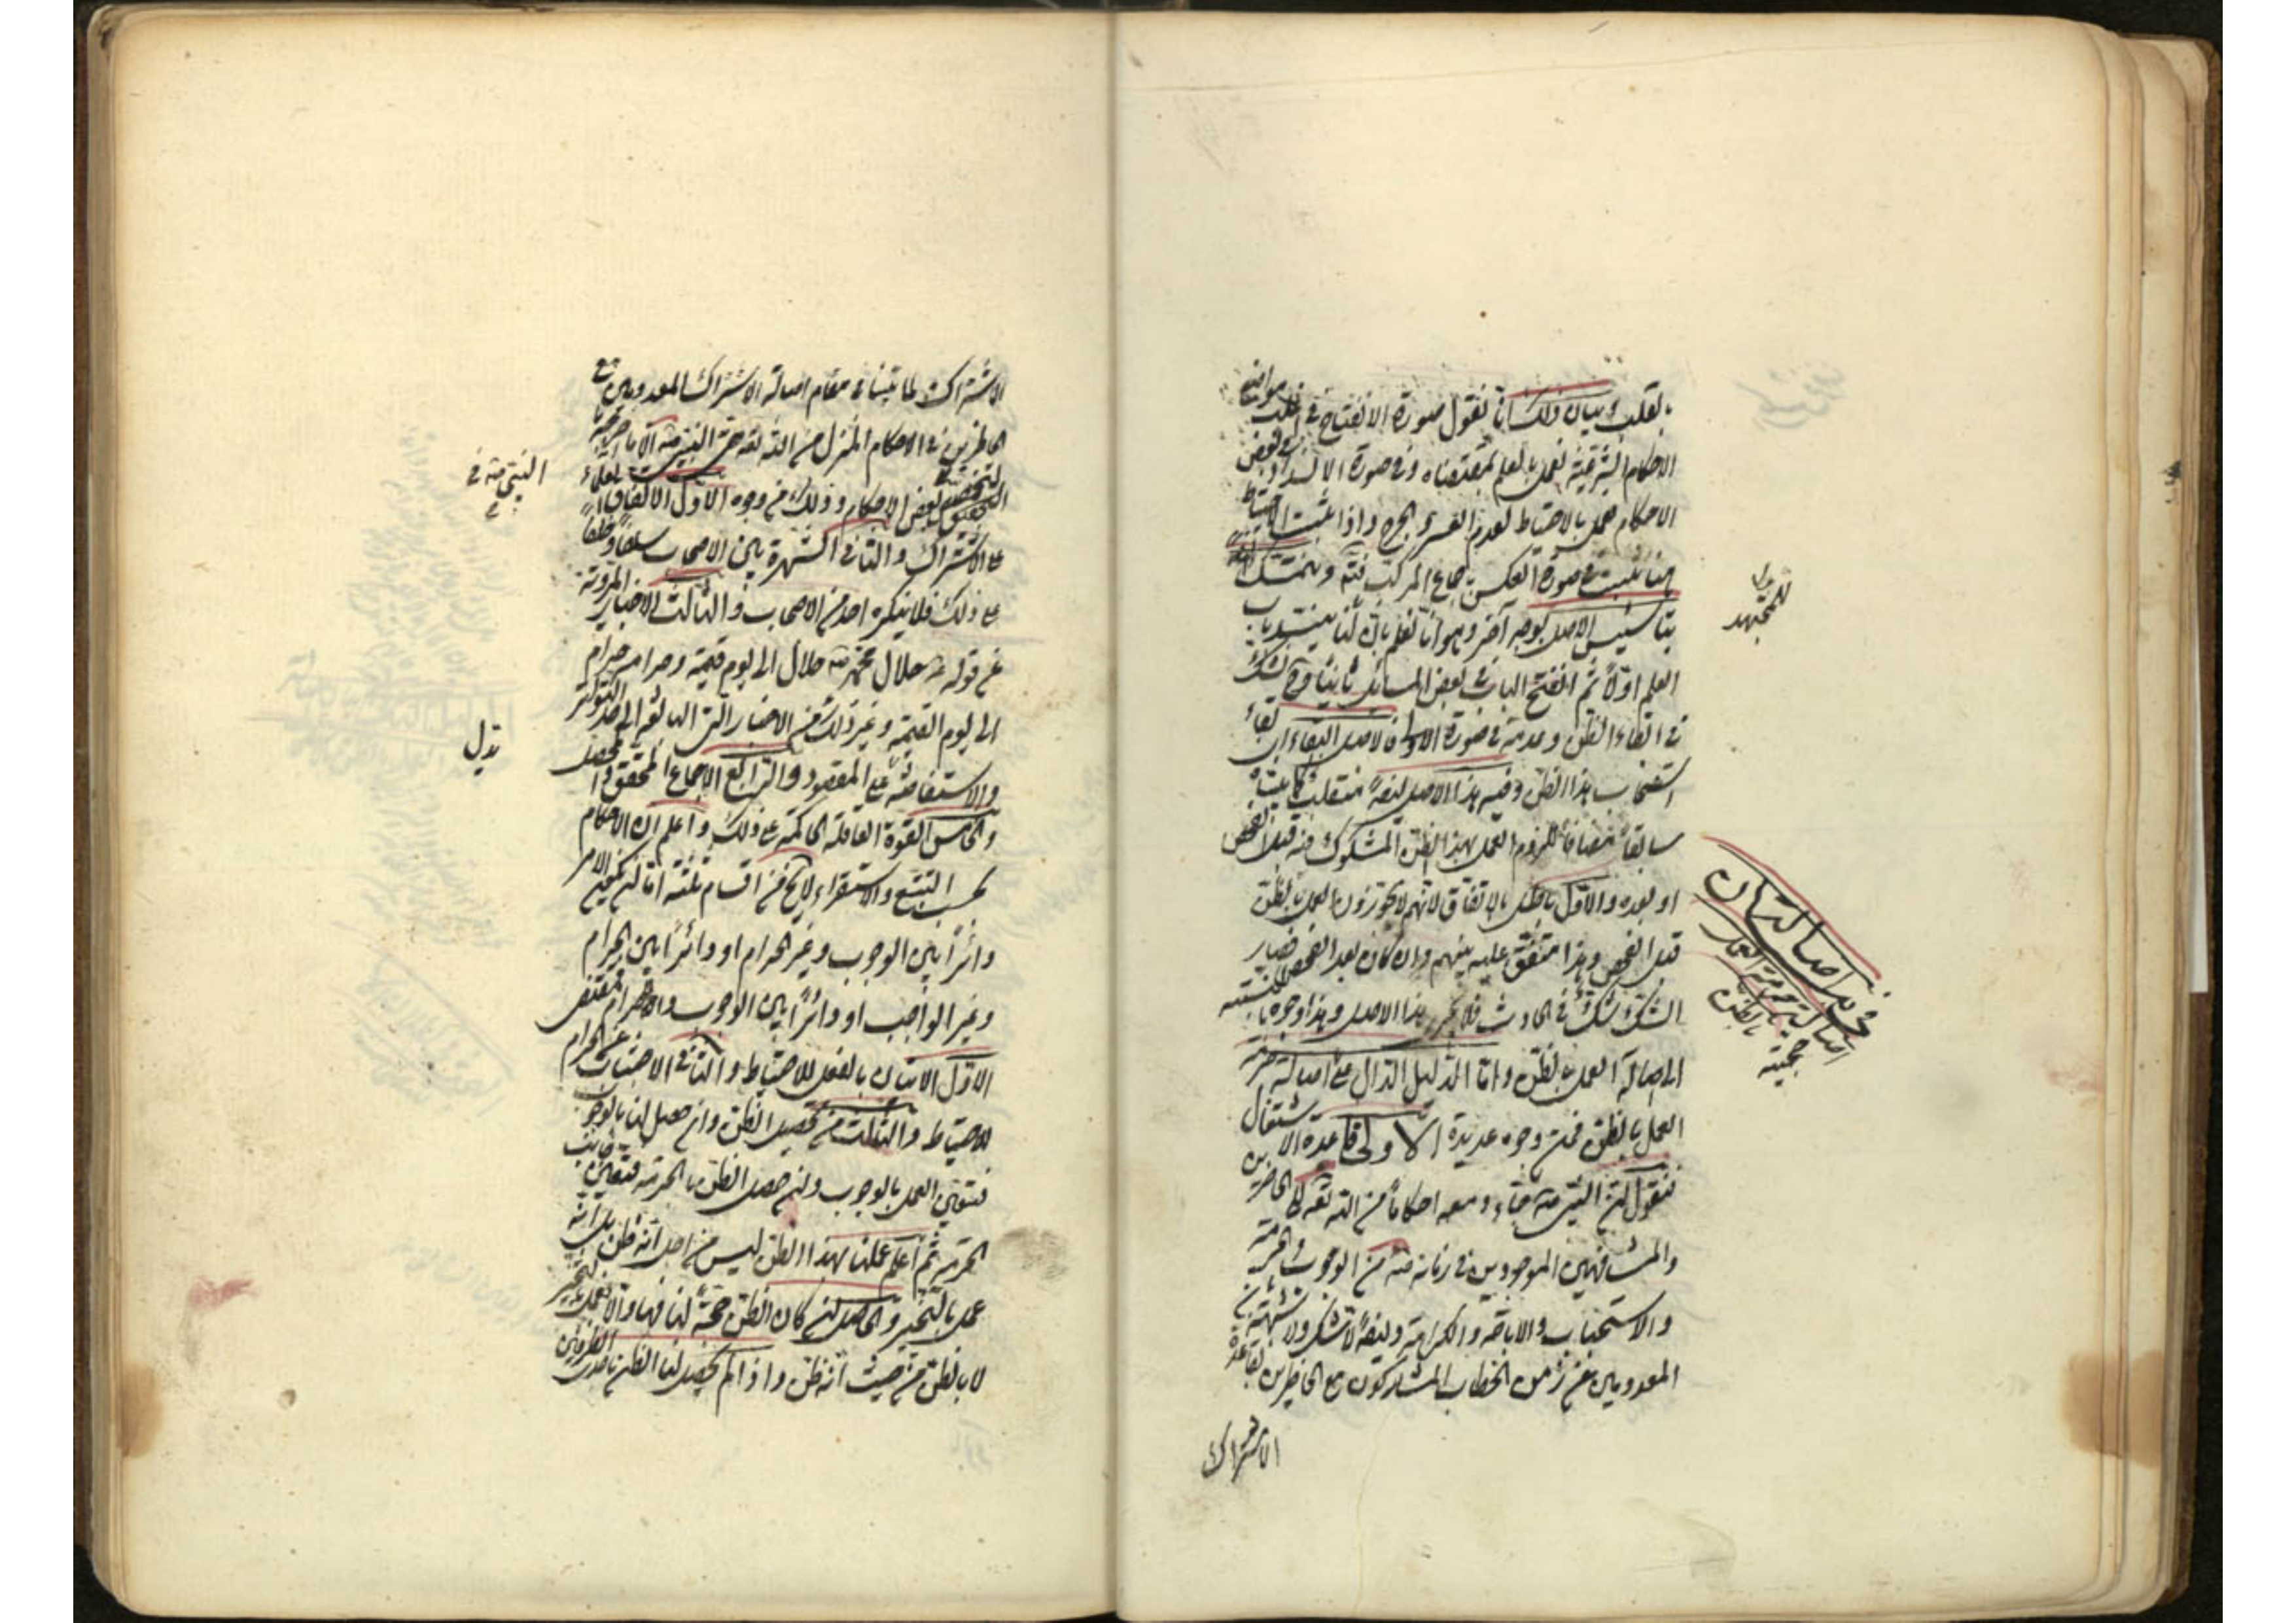 بالقلب وبيان ذلك انا نقول صورة الانفتاح في اغلب موارد
الاحكام الشرعية نعمل بالعلم بمقتضاه وفي صورة الانسداد في بعض
الاحكام نعمل بالاحتياط لعدم العسر والحرج واذا ثبت الاحتياط
هنا ثبت في صورة العكس باجماع المركب فتم ونتمسك
بتاسيس الاصل بوجه آخر وهو انا نعلم بان لنا ينسد باب
العلم اولا ثم انفتح الباب في بعض المسائل ثانيا وح نشك
في ابقاء الظن وعدمه في صورة الاولى فالاصل البقاء اي بقاء
استصحاب هذا الظن وفيه هذا الاصل ايضا منقلب كما بينا
سابقا مضافا للزوم العمل بهذا الظن المشكوك فيه قبل الفحص
او بعده والاول باطل بالاتفاق لانهم لا يجوزون العمل بالظن
قبل الفحص وهذا متفق عليه بينهم وان كان بعد الفحص فصار
الشك شك في الحادث فلا يجري هذا الاصل وهذا وجوه بالنسبة
الى اصالة العمل بالظن واما الدليل الدال على اصالة حرمة
العمل بالظن فمن وجوه عديدة الاولى قاعدة الاشتغال
فنقول ان النبي ص جاء ومعه احكاما من الله تعه للحاضرين
والمشافهين الموجودين في زمانه ص من الوجوب والحرمة
والاستحباب والاباحة والكراهة وايضا لا شك ولا شبهة بان
المعدومين عن زمن الخطاب المشاركون مع الحاضرين بقاعدة
الاشتراك
للمجتهد
في بيان اصالة
اصالة حرمة العمل
بالظن
حجية
الاشتراك لما بينا في مقام اصالة الاشتراك المعدومين مع
الحاضرين في الاحكام المنزل من الله تعه حتى النبي ص الا ما خرج
لبعض الاحكام وذلك من وجوه الاول الاتفاق
على الاشتراك والثاني الشهرة بين الاصحاب سلفا وخلفا
على ذلك فلا ينكره احد من الاصحاب والثالث الاخبار المروية
عن قوله ص حلال محمد ص حلال الى يوم قيمة وحرامه حرام
الى يوم القيمة وغير ذلك من الاخبار التي البالغة الى حد التواتر
والاستفاضة على المقصود والرابع الاجماع المحقق والمحصل
والخامس القوة العاقلة الحاكمة على ذلك واعلم ان الاحكام
بحسب التتبع والاستقراء لا يخ من اقسام ثلثة اما ان يكون الامر
دائرا بين الوجوب وغير الحرام او دائرا بين الحرام
وغير الواجب او دائرا بين الوجوب والحرام فمقتضى
الاول الاتيان بالفعل للاحتياط والثاني الاجتناب عن الحرام
للاحتياط والثالث من تحصيل الظن وان حصل لنا بالوجوب
فتعين العمل بالوجوب وان حصل الظن بالحرمة فتعين جانب
الحرمة ثم اعلم عملنا بهذا الظن ليس من اجل انه ظن بل انه
عمل بالتخيير والحاصل ان كان الظن حجة لنا فبها والا نعمل بالتخيير
لا بالظن من حيث انه ظن واذا لم يحصل لنا الظن باحدى الطرفين
النبي ص في
تدل